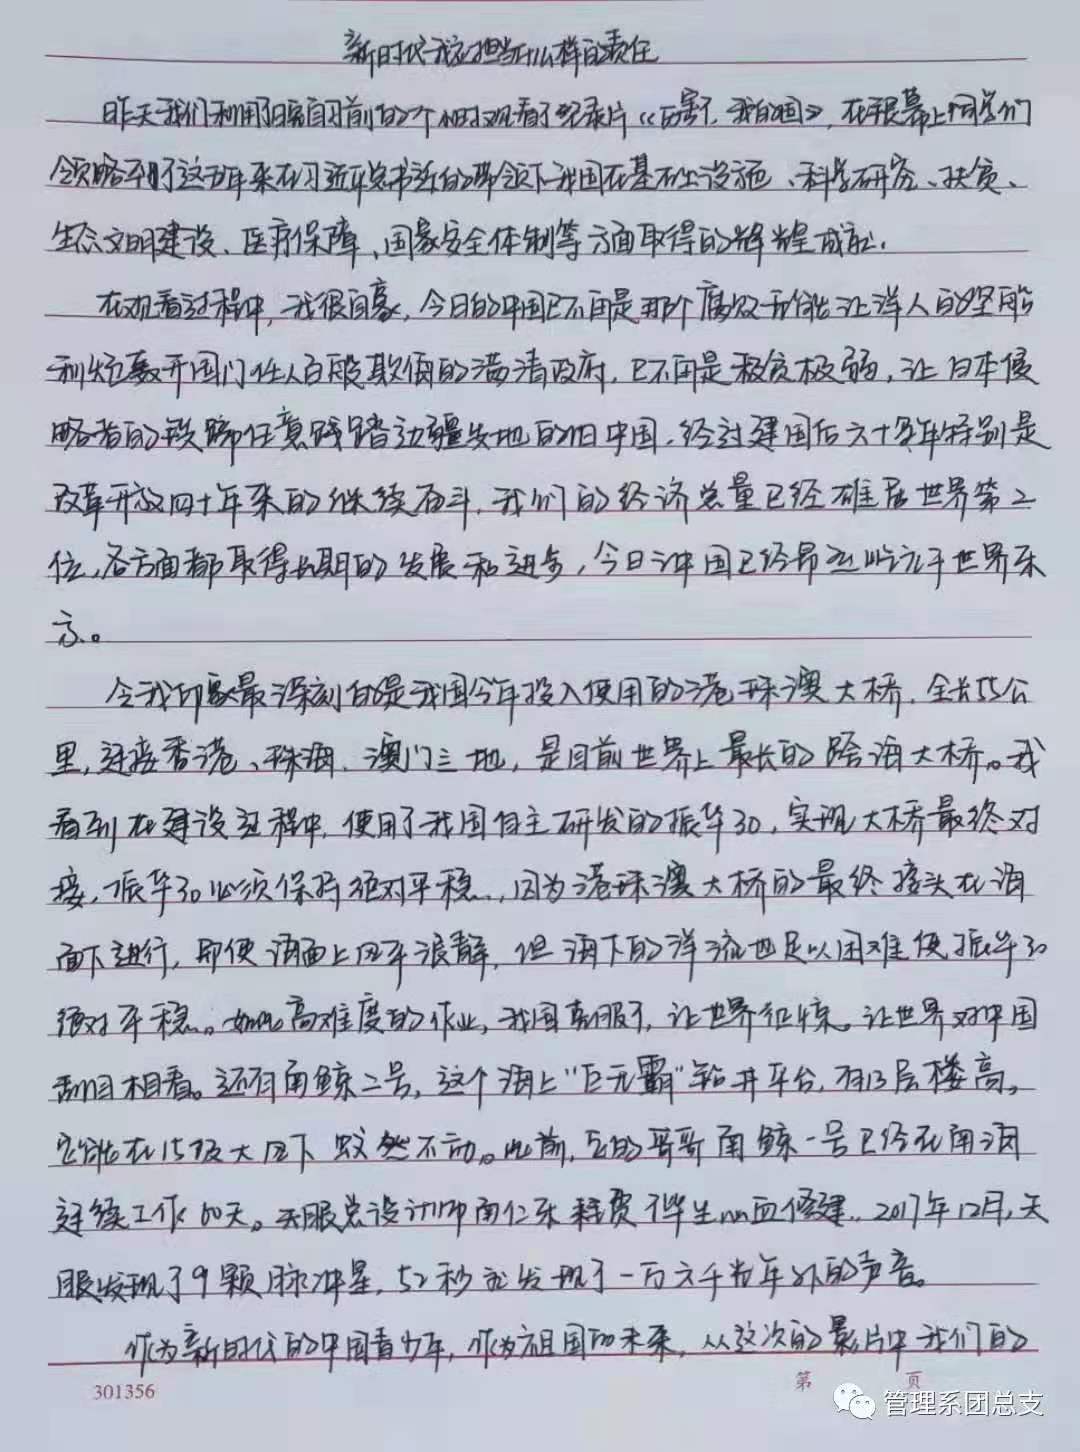 新时代我应担当什么样的责任
昨天我们利用了晚自习前的2个小时观看了纪录片《厉害了,我的国》,在银幕上同学们
领略到了这五年来在习近平总书记的带领下我国在基础设施、科学研究、扶贫、
生态文明建设、医疗保障、国家安全体制等方面取得的辉煌成就.
在观看过程中,我很自豪,今日的中国已不再是那个腐败无能让洋人的坚船
利炮轰开国门任人百般欺侮的满清政府,已不再是积贫极弱,让日本侵
略者的铁蹄任意践踏边疆失地的旧中国.经过建国后六十多年特别是
改革开放四十年来的继续奋斗,我们的经济总量已经雄居世界第2
位,各方面都取得长期的发展和进步,今日之中国已经昂然屹立于世界东
方。
令我印象最深刻的是我国今年投入使用的港珠澳大桥.全长55公
里,连接香港、珠海、澳门三地,是目前世界上最长的跨海大桥。我
看到在建设过程中,使用了我国自主研发的振华30,实现大桥最终对
接,振华30必须保持绝对平稳,因为港珠澳大桥的最终接头在海
面下进行,即使海面上风平浪静,但海下的洋流也足以困难使振华30
绝对平稳。如此高难度的作业,我国克服了,让世界惊,让世界对中国
刮目相看。还有南鲸二号,这个海上“巨无霸”钻井平台,有13层楼高。
它能在15级大风下蚊然不动。此前,它的哥哥南鲸一号已经在南海
连续工作60天。天眼总设计师南仁东耗费了毕生心血修建.2017年12月,天
眼发现了9颗脉冲星,52秒就发现了一万六千光年外的声音。
作为新时代的中国青少年,作为祖国的未来,从这次的影片中我们的
301356
第 页
管理系团总支